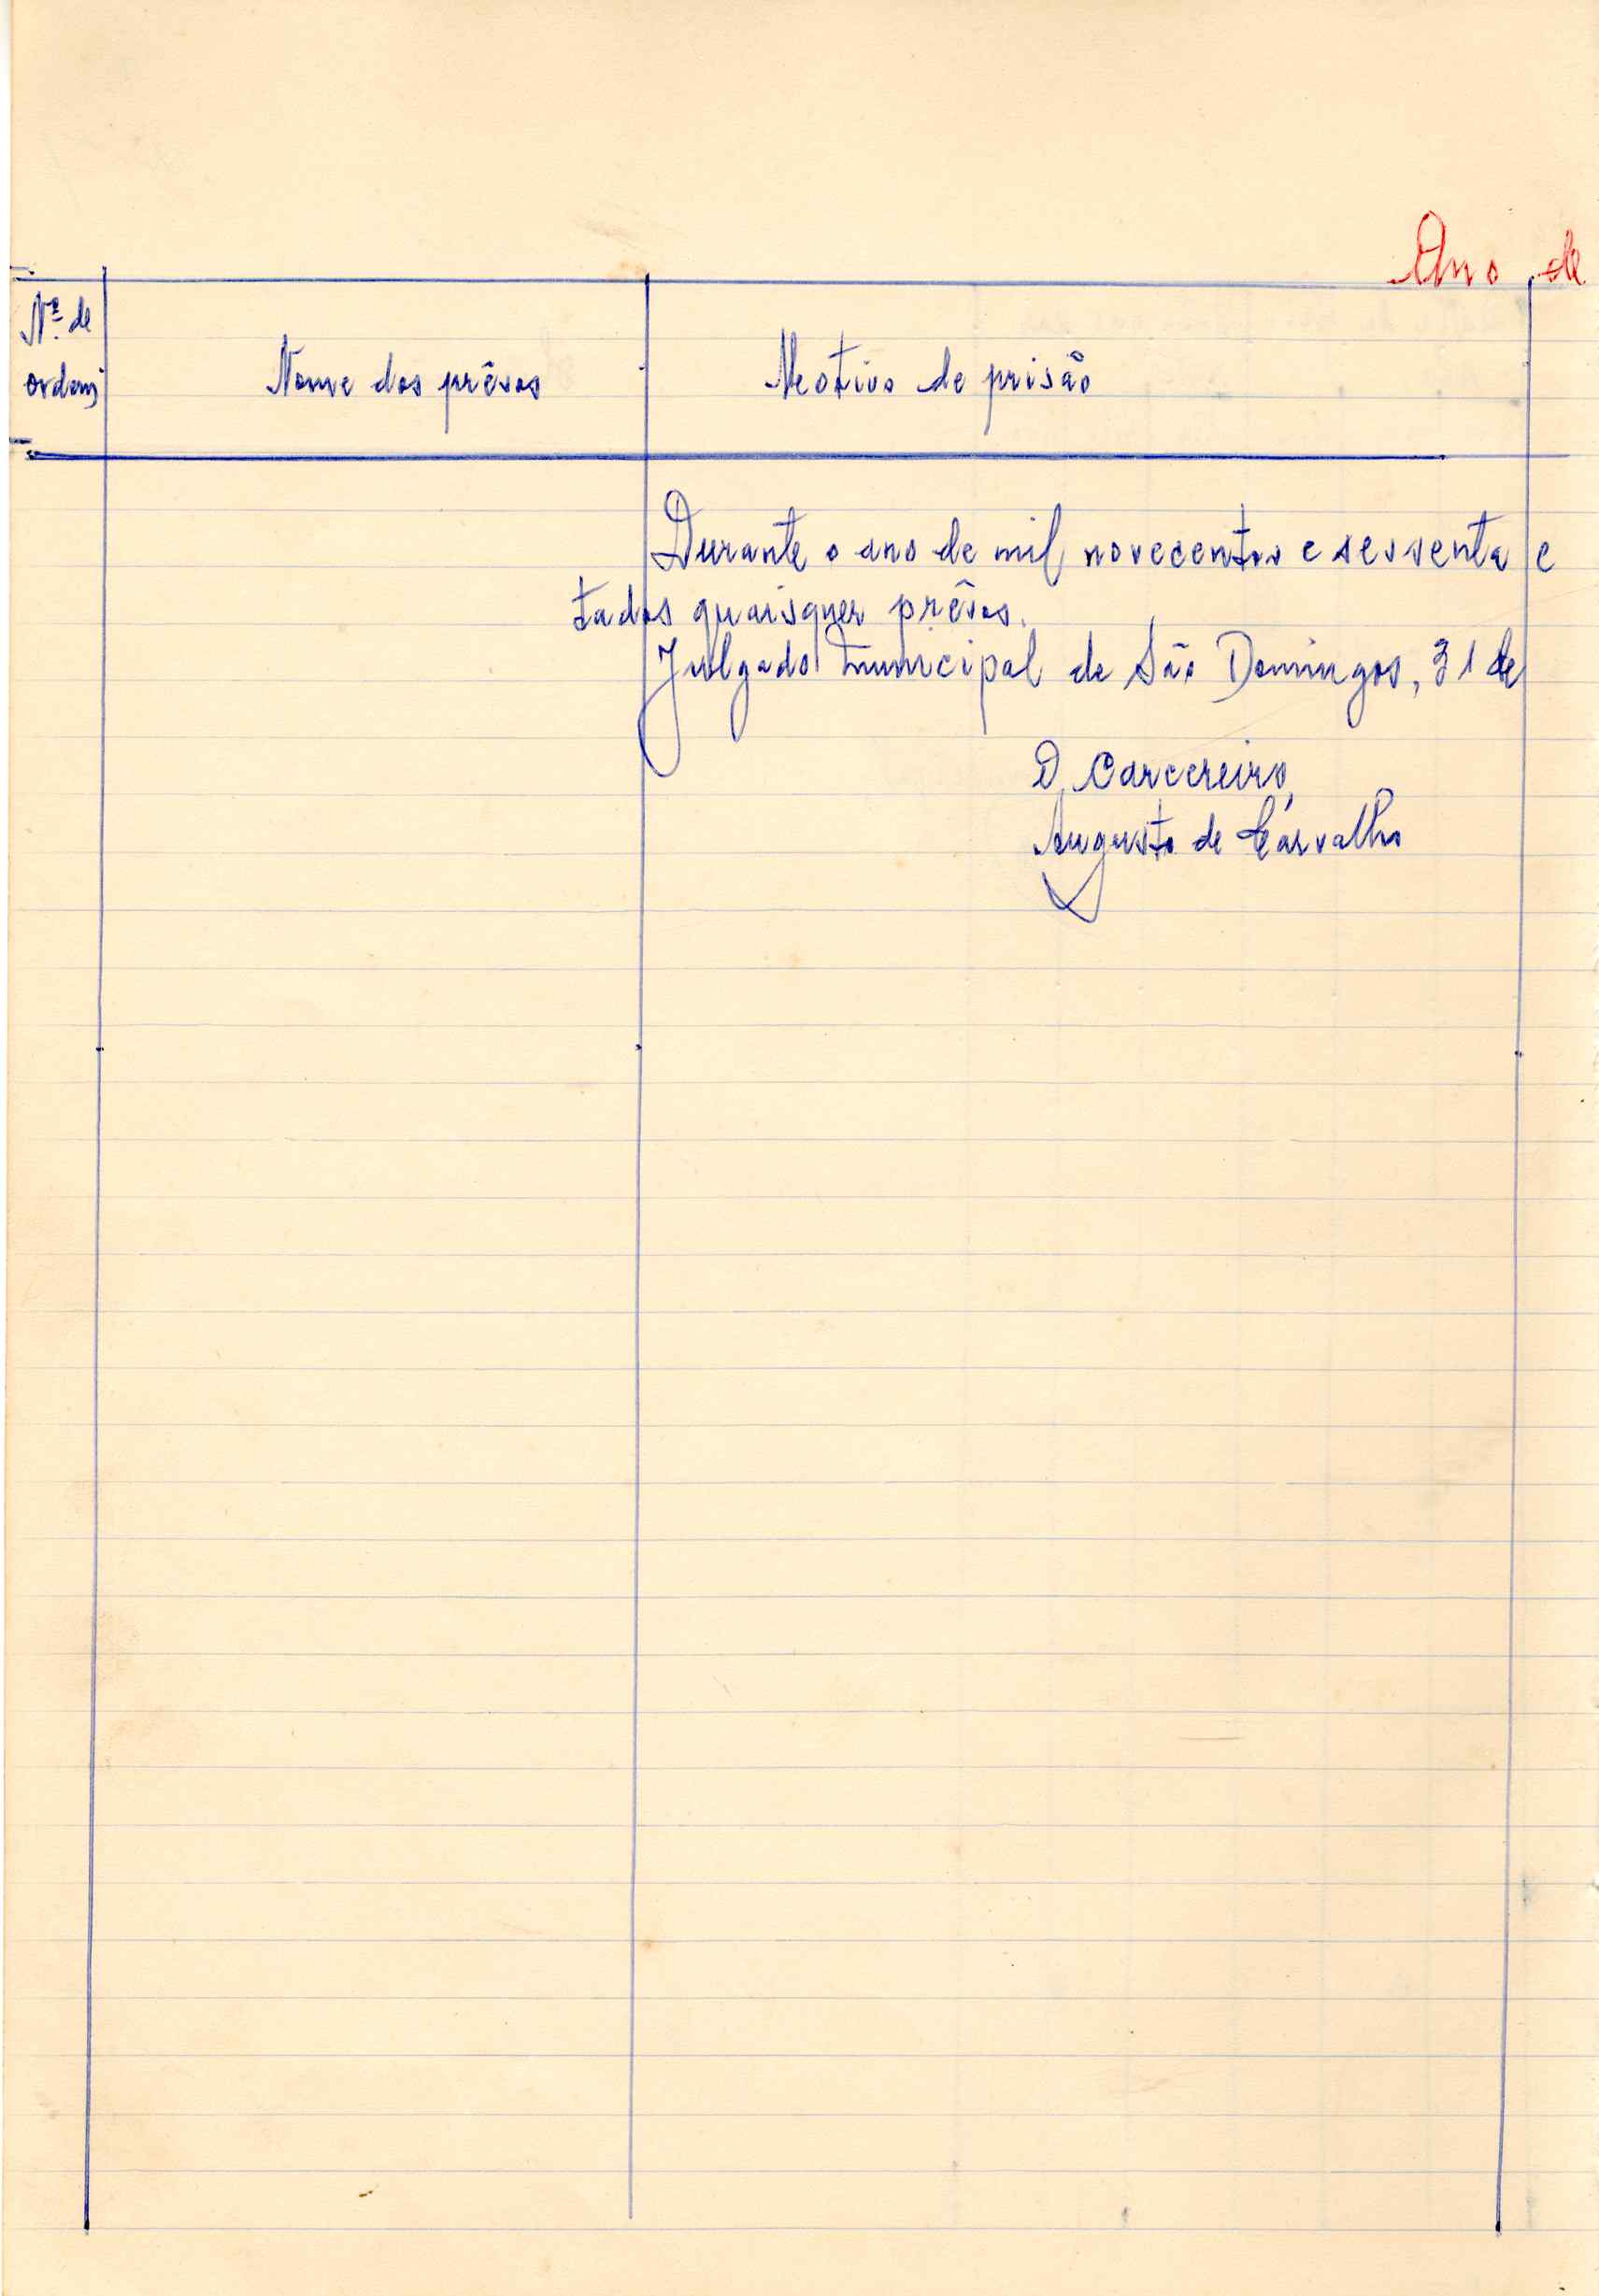 Ano de
Nº de
ordem
Nome dos prêsos
Motivo de prisão
Durante o ano de mil novecentos e sessenta e
tados quaisquer prêsos.
Julgado municipal de São Domingos, 31 de
O Carcereiro,
Augusto de Carvalho